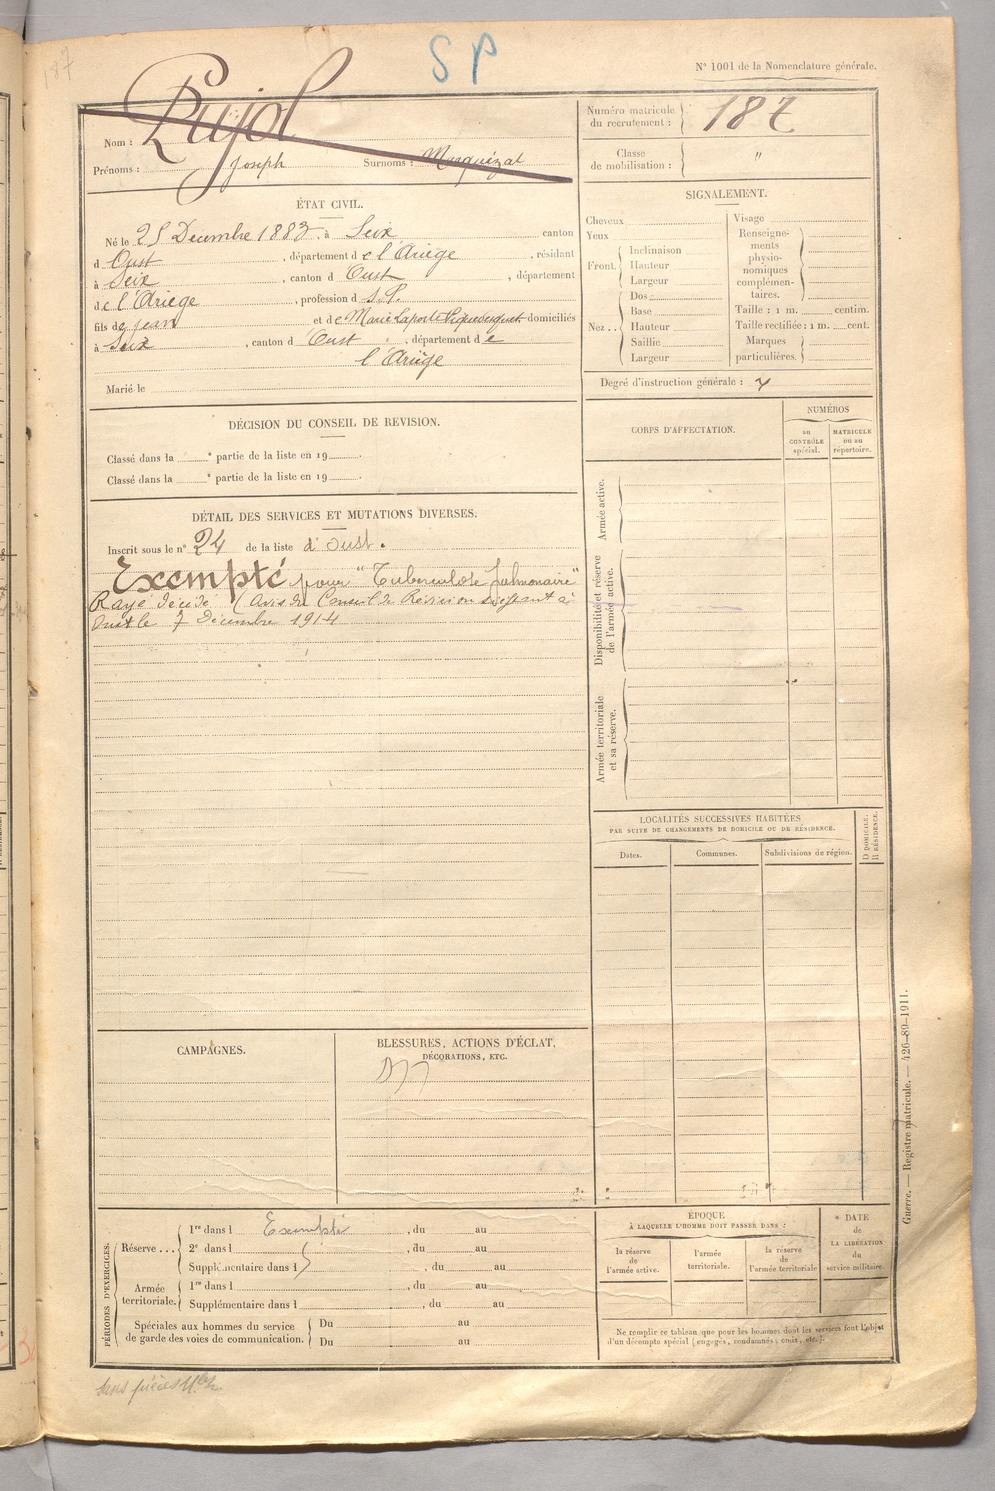 187
SP
N° 1001 de la Nomenclature générale.
Nom : Pujol
Prénoms : Joseph Surnoms : Marquézat
Numéro matricule du recrutement : 187
Classe de mobilisation : "
ÉTAT CIVIL.
Né le 25 Décembre 1883, à Seix canton
d Oust, département de l'Ariège, résidant
à Seix, canton d Oust, département
de l'Ariège, profession d S.P.
fils de Jean et de Marie Laporte domiciliés
à Seix, canton d Oust, département de
l'Ariège
Marié le
SIGNALEMENT.
Cheveux
Yeux
Front. Inclinaison
Hauteur
Largeur
Nez... Dos
Base
Hauteur
Saillie
Largeur
Visage
Renseignements physionomiques complémentaires.
Taille : 1 m. centim.
Taille rectifiée : 1 m. cent.
Marques particulières.
Degré d'instruction générale :
DÉCISION DU CONSEIL DE REVISION.
Classé dans la e partie de la liste en 19 .
Classé dans la e partie de la liste en 19 .
DÉTAIL DES SERVICES ET MUTATIONS DIVERSES.
Inscrit sous le n° 24 de la liste d'Oust.
Exempté pour "Tuberculose pulmonaire"
Rayé décédé (Avis du Conseil de Révision siégeant à
Oust le 7 Décembre 1914
CORPS D'AFFECTATION.
NUMÉROS
au CONTRÔLE spécial.
MATRICULE ou au répertoire.
Armée active.
Disponibilité et réserve de l'armée active.
Armée territoriale et sa réserve.
LOCALITÉS SUCCESSIVES HABITÉES
PAR SUITE DE CHANGEMENTS DE DOMICILE OU DE RÉSIDENCE.
Dates.
Communes.
Subdivisions de région.
D DOMICILE.
R RÉSIDENCE.
CAMPAGNES.
BLESSURES, ACTIONS D'ÉCLAT,
DÉCORATIONS, ETC.
PÉRIODES D'EXERCICES.
Réserve ... 1re dans l Exempté , du au
2e dans l , du au
Supplémentaire dans l , du au
Armée territoriale. 1re dans l , du au
Supplémentaire dans l , du au
Spéciales aux hommes du service de garde des voies de communication. Du au
Du au
ÉPOQUE
À LAQUELLE L'HOMME DOIT PASSER DANS :
la réserve de l'armée active.
l'armée territoriale.
la réserve de l'armée territoriale
* DATE de LA LIBÉRATION du service militaire.
Ne remplir ce tableau que pour les hommes dont les services font l'objet
d'un décompte spécial (engagés, condamnés, omis, etc.).
Guerre. — Registre matricule. — 426-89-1911.